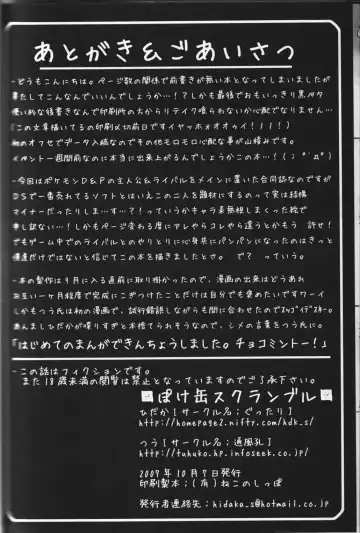 あとがき&ごあいさつ
-どうもこんにちは。ページ数の関係で前書きが無い本となってしまいましたが
果たしてこんなでいいんでしょうか…!?しかも最後でおもいっきり黒ベタ
使いめな後書きなんで印刷所の方からリテイク喰らわないか心配でなりません…
(この文章描いてるの印刷〆切前日ですイヤッホォオオゥイ!!!!)
初のオフセでデータ入稿なのでその他モロモロ心配な事が山積みです。
イベント一週間前なのに本当に出来上がるんでしょうかこの本…!(;゜Д゜)
-今回はポケモンD&Pの主人公&ライバルをメインに置いた合同誌なのですが
DSで一番売れてるソフトとはいえこの二人を題材にするのって実は結構
マイナーだったりしま…す…て?!っていうかキャラ素無視しまくった絵で
申し訳ない…!しかもページ変わる度にアレやらコレやら違うとかもう 許せ!
でもゲーム中でのライバルとのやりとりに心身共にパンパンになったのはきっと
僕達だけではないと信じてこの本を描きましたとさ。 でて っていう。
-本の製作は9月に入る直前に取り掛かったので、漫画の出来はどうあれ
お互い一ヶ月程度で完成にこぎつけたことだけは自分でも褒めたいですワーイ
しかもつう氏は初の漫画で、試行錯誤しながらも間に合わせたので
あんましひだかが喋りすぎと本噎てられそうなので、シメの言葉をつう氏に。
「はじめてのまんができんちょうしました。チョコミントー!」
-この話はフィクションです。
また18歳未満の閲覧は禁止となっていますのでご了承下さい。
ぽけ缶スクランブル
ひだか[サークル名;ぐったり]
http://homepage2.nifty.com/hdk.s/
つう[サークル名;通風孔]
http://tuhuko.hp.infoseek.co.jp/
2007年10月7日発行
印刷製本;(有)ねこのしっぽ
発行者連絡先;hidaka_s@hotmail.co.jp